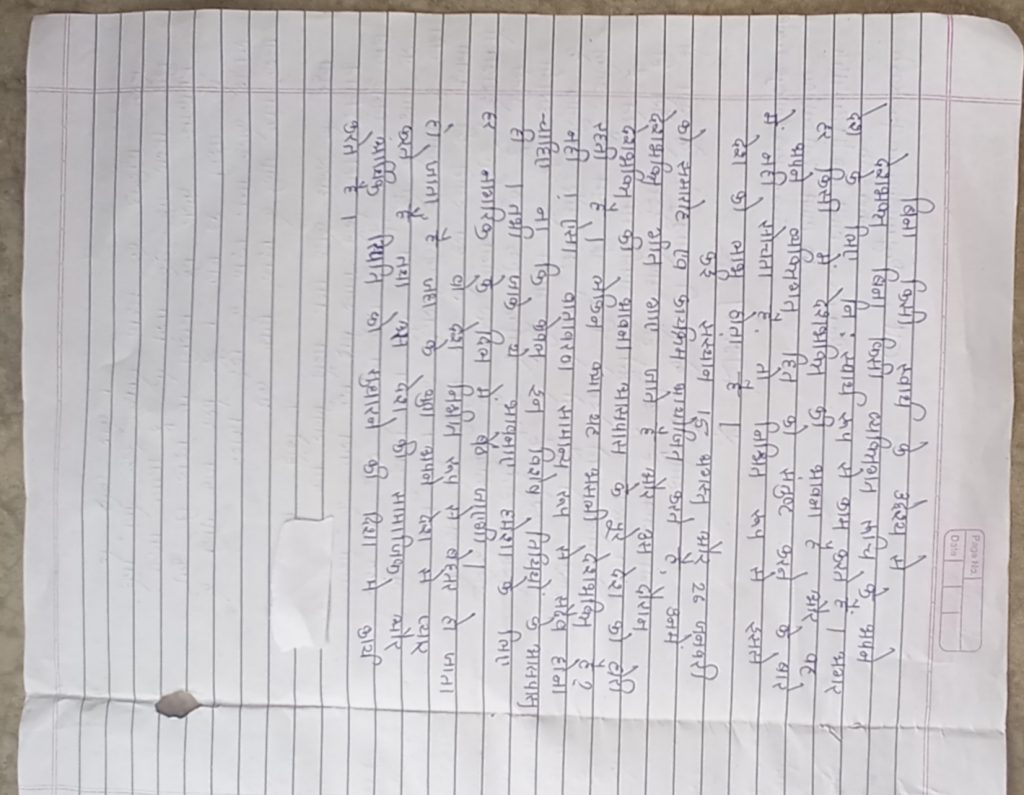 Page No.
Date
बिना किसी स्वार्थ के उद्देश्य से
देशभक्त बिना किसी व्यक्तिगत लाभ के अपने
देश के लिए निःस्वार्थ रूप से काम करते हैं। अगर
हर किसी में देशभक्ति की भावना है और वह
अपने व्यक्तिगत हित को संतुष्ट करने के बारे
में नहीं सोचता है, तो निश्चित रूप से इससे
देश को लाभ होता है।
कई संस्थान 15 अगस्त और 26 जनवरी
को समारोह एवं कार्यक्रम आयोजित करते है, इनमें
देशभक्ति गीत गाए जाते है और उस दौरान
देशभक्ति की भावना आसपास के पूरे देश को घेरी
रहती है। लेकिन क्या यह असली देशभक्ति है?
नही। ऐसा वातावरण सामान्य रूप से सदैव होना
चाहिए ना कि केवल इन विशेष तिथियों के आसपास
ही। तभी जाके ये भावनाएं हमेशा के लिए
हर नागरिक के दिल में बैठ जाएंगी।
वो देश निश्चित रूप से बेहतर हो जाता
हो जाता है जहां के युवा अपने देश से प्यार
करते है तथा उस देश की सामाजिक और
आर्थिक स्थिति को सुधारने की दिशा में कार्य
करते है।